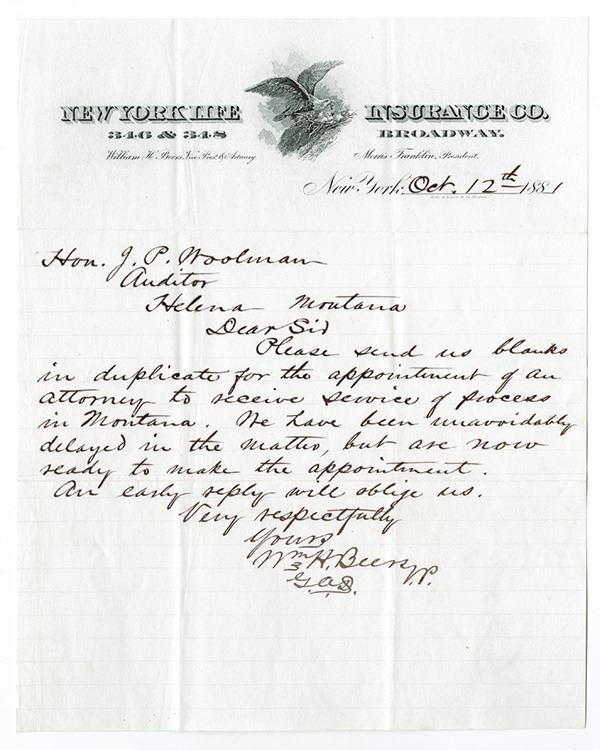 NEW YORK LIFE INSURANCE CO.
346 & 348 BROADWAY.
William H. Beers, Vice Prest. & Actuary. Morris Franklin, President.
New York, Oct. 12th 1881
Hon. J. P. Woolman
Auditor
Helena Montana
Dear Sir
Please send us blanks
in duplicate for the appointment of an
attorney to receive service of process
in Montana. We have been unavoidably
delayed in the matter, but are now
ready to make the appointment.
An early reply will oblige us.
Very respectfully
Yours
Wm H. Beers V.P.